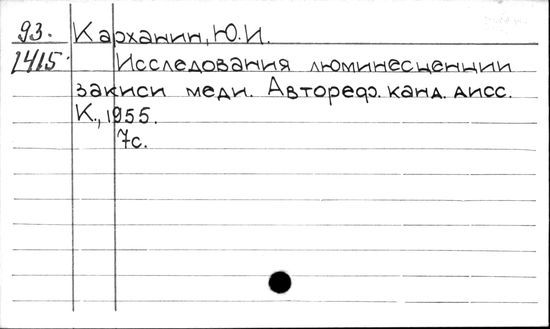 93. Карханин, Ю.И.
1415 Исследования люминесценции
закиси меди. Автореф. канд. дисс.
К., 1955.
7с.